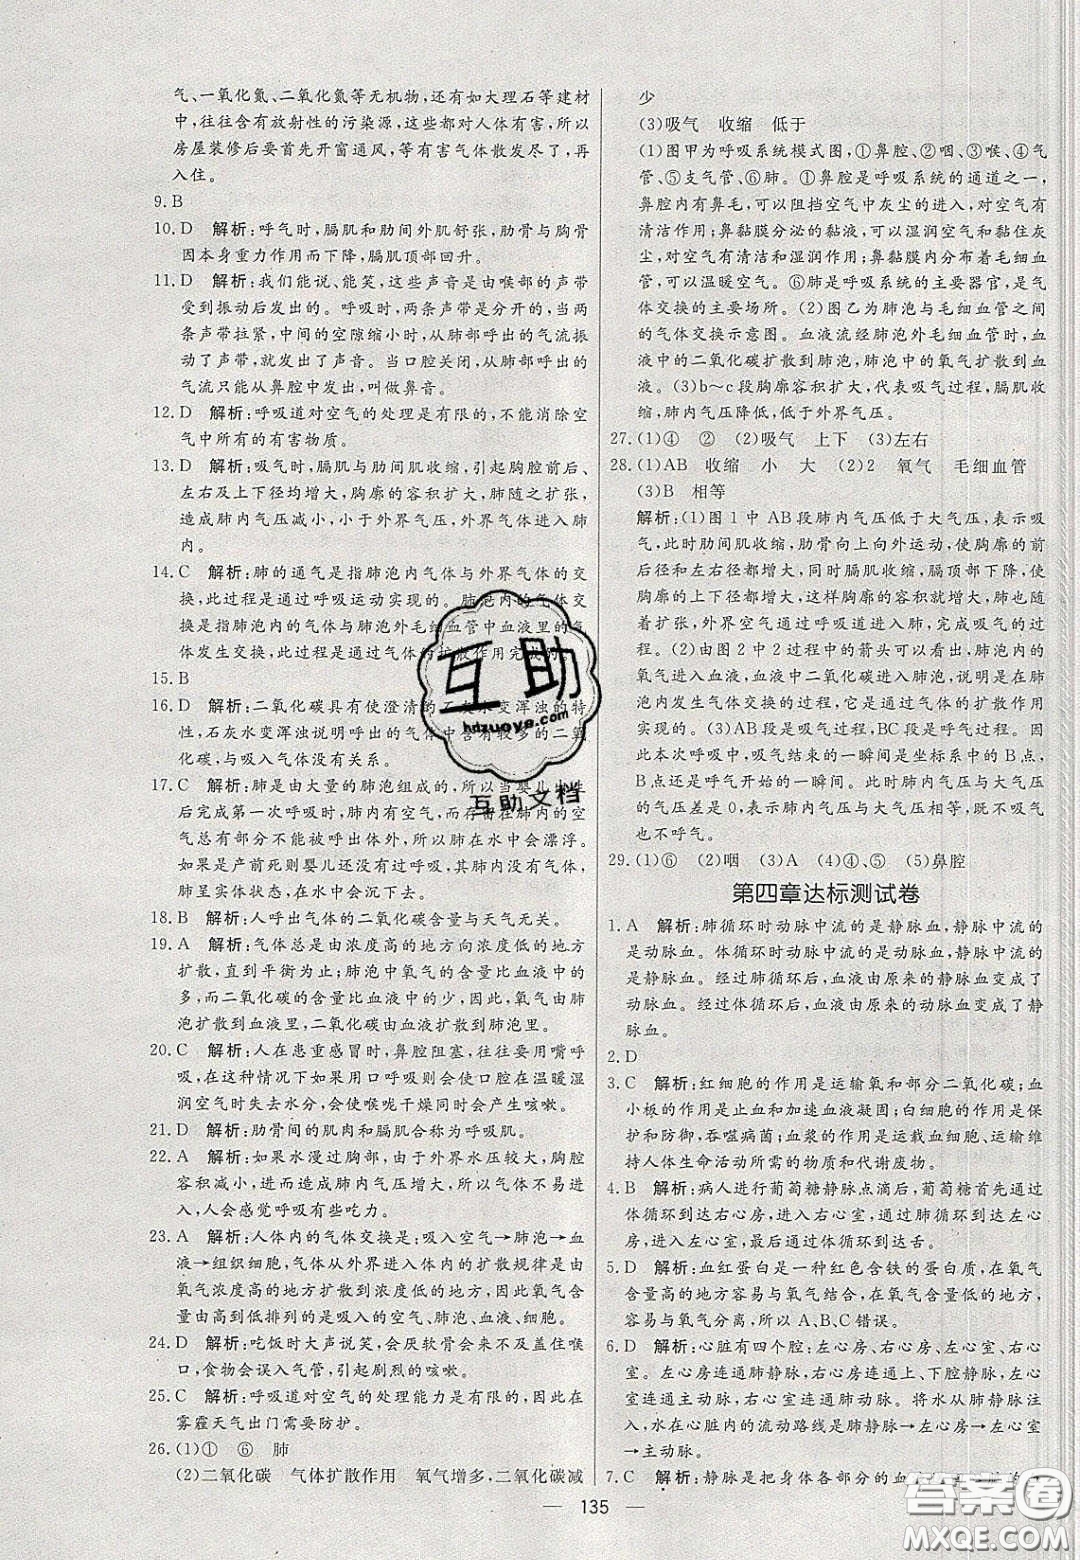 气、一氧化氮、二氧化氮等无机物,还有如大理石等建材
中,往往含有放射性的污染源,这些都对人体有害,所以
房屋装修后要首先开窗通风,等有害气体散发尽了,再
入住。
9. B
10. D 解析:呼气时,膈肌和肋间外肌舒张,肋骨与胸骨
因本身重力作用而下降,膈肌顶部回升。
11. D 解析:我们能说、能笑,这些声音是由喉部的声带
受到振动后发出的。呼吸时,两条声带是分开的。当两
条声带拉紧,中间的空隙缩小时,从肺部呼出的气流振
动了声带,就发出了声音。当口腔关闭,从肺部呼出的
气流只能从鼻腔中发出,叫做鼻音。
12. D 解析:呼吸道对空气的处理是有限的,不能消除空
气中所有的有害物质。
13. D 解析:吸气时,膈肌与肋间外肌收缩,引起胸腔前后、
左右及上下径均增大,胸廓的容积扩大,肺随之扩张,
造成肺内气压减小,小于外界气压,外界气体进入肺
内。
14. C 解析:肺的通气是指肺泡内气体与外界气体的交
换,此过程是通过呼吸运动实现的。肺泡内的气体交
换是指肺泡内的气体与肺泡外毛细血管中血液里的气
体发生交换,此过程是通过气体的扩散作用完成的。
15. B
16. D 解析:二氧化碳具有使澄清的石灰水变浑浊的特
性,石灰水变浑浊说明呼出的气体中含有较多的二氧
化碳,与吸入气体没有关系。
17. C 解析:肺是由大量的肺泡组成的,所以当婴儿出生
后完成第一次呼吸时,肺内有空气,而存留在肺内的空
气总有部分不能被呼出体外,所以肺在水中会漂浮。
如果是产前死则婴儿还没有过呼吸,肺内没有气体,
肺呈实体状态,在水中会沉下去。
18. B 解析:人呼出气体的二氧化碳含量与天气无关。
19. A 解析:气体总是由浓度高的地方向浓度低的地方
扩散,直到平衡为止;肺泡中氧气的含量比血液中的
多,而二氧化碳的含量比血液中的少,因此,氧气由肺
泡扩散到血液里,二氧化碳由血液扩散到肺泡里。
20. C 解析:人在患重感冒时,鼻腔阻塞,往往要用嘴呼
吸,在这种情况下如果用口呼吸则会使口腔在温暖湿
润空气时失去水分,使喉咙干燥同时会产生咳嗽。
21. D 解析:肋骨间的肌肉和膈肌合称为呼吸肌。
22. A 解析:如果水漫过胸部,由于外界水压较大,胸腔
容积不易增大,导致肺内气压增大,所以气体不易进
入,人会感觉呼吸有些吃力。
23. A 解析:人体内的气体交换是:吸入空气→肺泡→血
液→组织细胞,气体从外界进入体内的扩散规律是由
氧气浓度高的地方扩散到浓度低的地方,因此氧气含
量由高到低排列的是吸入的空气、肺泡、血液、细胞。
24. D 解析:吃饭时大声说笑,会厌软骨会来不及盖住喉
口,食物会误入气管,引起剧烈的咳嗽。
25. C 解析:呼吸道对空气的处理能力是有限的,因此在
雾霾天气出门需要防护。
26. (1)① ⑥ 肺
(2)二氧化碳 气体扩散作用 氧气增多,二氧化碳减
少
(3)吸气 收缩 低于
(1)图甲为呼吸系统模式图,①鼻腔、②咽、③喉、④气
管、⑤支气管、⑥肺。①鼻腔是呼吸系统的通道之一,
鼻腔内有鼻毛,可以阻挡空气中灰尘的进入,对空气有
清洁作用;鼻黏膜分泌的黏液,可以湿润空气和黏住灰
尘,对空气有清洁和湿润作用;鼻黏膜内分布有毛细血
管,可以温暖空气。⑥肺是呼吸系统的主要器官,是气
体交换的主要场所。(2)图乙为肺泡与毛细血管之间
的气体交换示意图。血液流经肺泡外毛细血管时,血
液中的二氧化碳扩散到肺泡,肺泡中的氧气扩散到血
液。(3)b～c段胸廓容积扩大,代表吸气过程,膈肌收
缩,肺内气压降低,低于外界气压。
27. (1)④ ② (2)吸气 上下 (3)左右
28. (1)AB 收缩 小 大 (2)2 氧气 毛细血管
(3)B 相等
解析:(1)图 1 中 AB 段肺内气压低于大气压,表示吸
气,此时肋间肌收缩,肋骨向上向外运动,使胸廓的前
后径和左右径都增大,同时膈肌收缩,膈顶部下降,使
胸廓的上下径增大,这样胸廓的容积就增大,肺也随着
扩张,外界空气通过呼吸道进入肺,完成吸气的过
程。(2)由图 2 中 2 过程中的箭头可以看出肺泡中的
氧气进入血液,血液中二氧化碳进入肺泡,说明是在肺
泡内发生气体交换的过程,它是通过气体的扩散作用
实现的。(3)AB段是吸气过程,BC段是呼气过程。因
此本次呼吸中,吸气结束的一瞬间是坐标系中的 B 点,
B 点还是呼气开始的一瞬间。此时肺内气压与大气压
的气压差是 0,表示肺内气压与大气压相等,既不吸气
也不呼气。
29. (1)⑥ (2)咽 (3)A (4)④、⑤ (5)鼻腔
第四章达标测试卷
1. A 解析:肺循环时动脉中流的是静脉血,静脉中流的
是动脉血。体循环时动脉中流的是动脉血,静脉中流的
是静脉血。经过肺循环后,血液由原来的静脉血变成了
动脉血。经过体循环后,血液由原来的动脉血变成了静
脉血。
2. D
3. C 解析:红细胞的作用是运输氧和部分二氧化碳;血
小板的作用是止血和加速血液凝固;白细胞的作用是保
护和防御,吞噬病菌;血浆的作用是运载血细胞、运输维
持人体生命活动所需的物质和代谢废物。
4. B 解析:病人进行葡萄糖静脉点滴后,葡萄糖首先通过
体循环到达右心房,进入右心室,肺循环到达左心房,
进入左心室,最后通过体循环到达舌。
5. D 解析:血红蛋白是一种红色含铁的蛋白质,在氧气
浓度高的地方容易与氧气结合,在氧气浓度低的地方
容易与氧气分离,所以 A、B、C 错误。
6. D 解析:心脏有四个腔:左心房、右心房、左心室、右心
室。左心房连通肺静脉,右心房连通上、下腔静脉,左心
室连通主动脉,右心室连通肺动脉。将水从肺静脉灌
入,水在心脏内的流动路线是肺静脉→左心房→左心室
→主动脉。
7. C 解析:静脉是把身体各部分的血
135
互助
hdzuoye.com
互助文档
答案圈
MXQE.COM